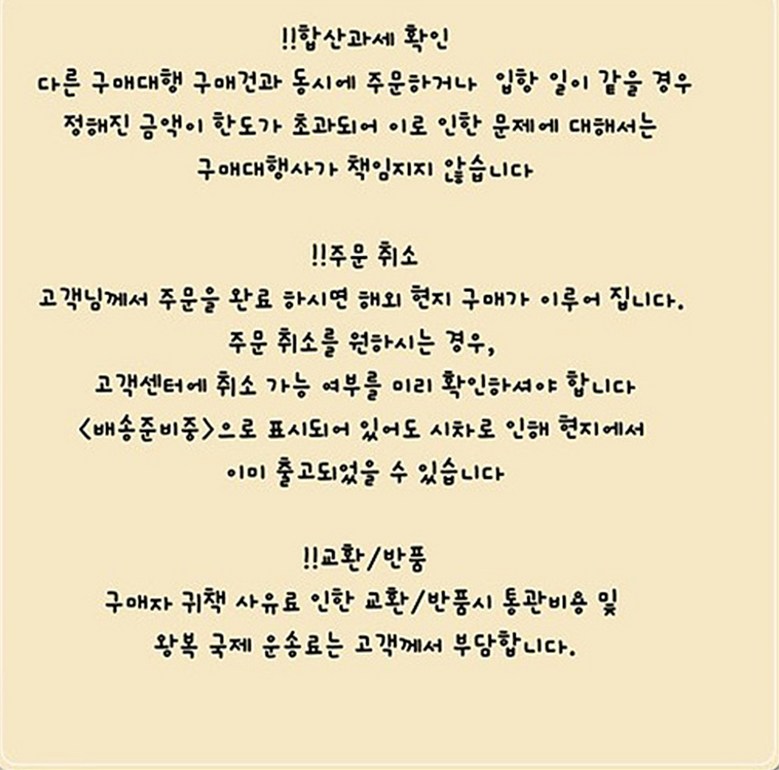 !!합산과세 확인
다른 구매대행 구매건과 동시에 주문하거나 입항 일이 같을 경우
정해진 금액이 한도가 초과되어 이로 인한 문제에 대해서는
구매대행사가 책임지지 않습니다
!!주문 취소
고객님께서 주문을 완료 하시면 해외 현지 구매가 이루어 집니다.
주문 취소를 원하시는 경우,
고객센터에 취소 가능 여부를 미리 확인하셔야 합니다
<배송준비중>으로 표시되어 있어도 시차로 인해 현지에서
이미 출고되었을 수 있습니다
!!교환/반품
구매자 귀책 사유료 인한 교환/반품시 통관비용 및
왕복 국제 운송료는 고객께서 부담합니다.